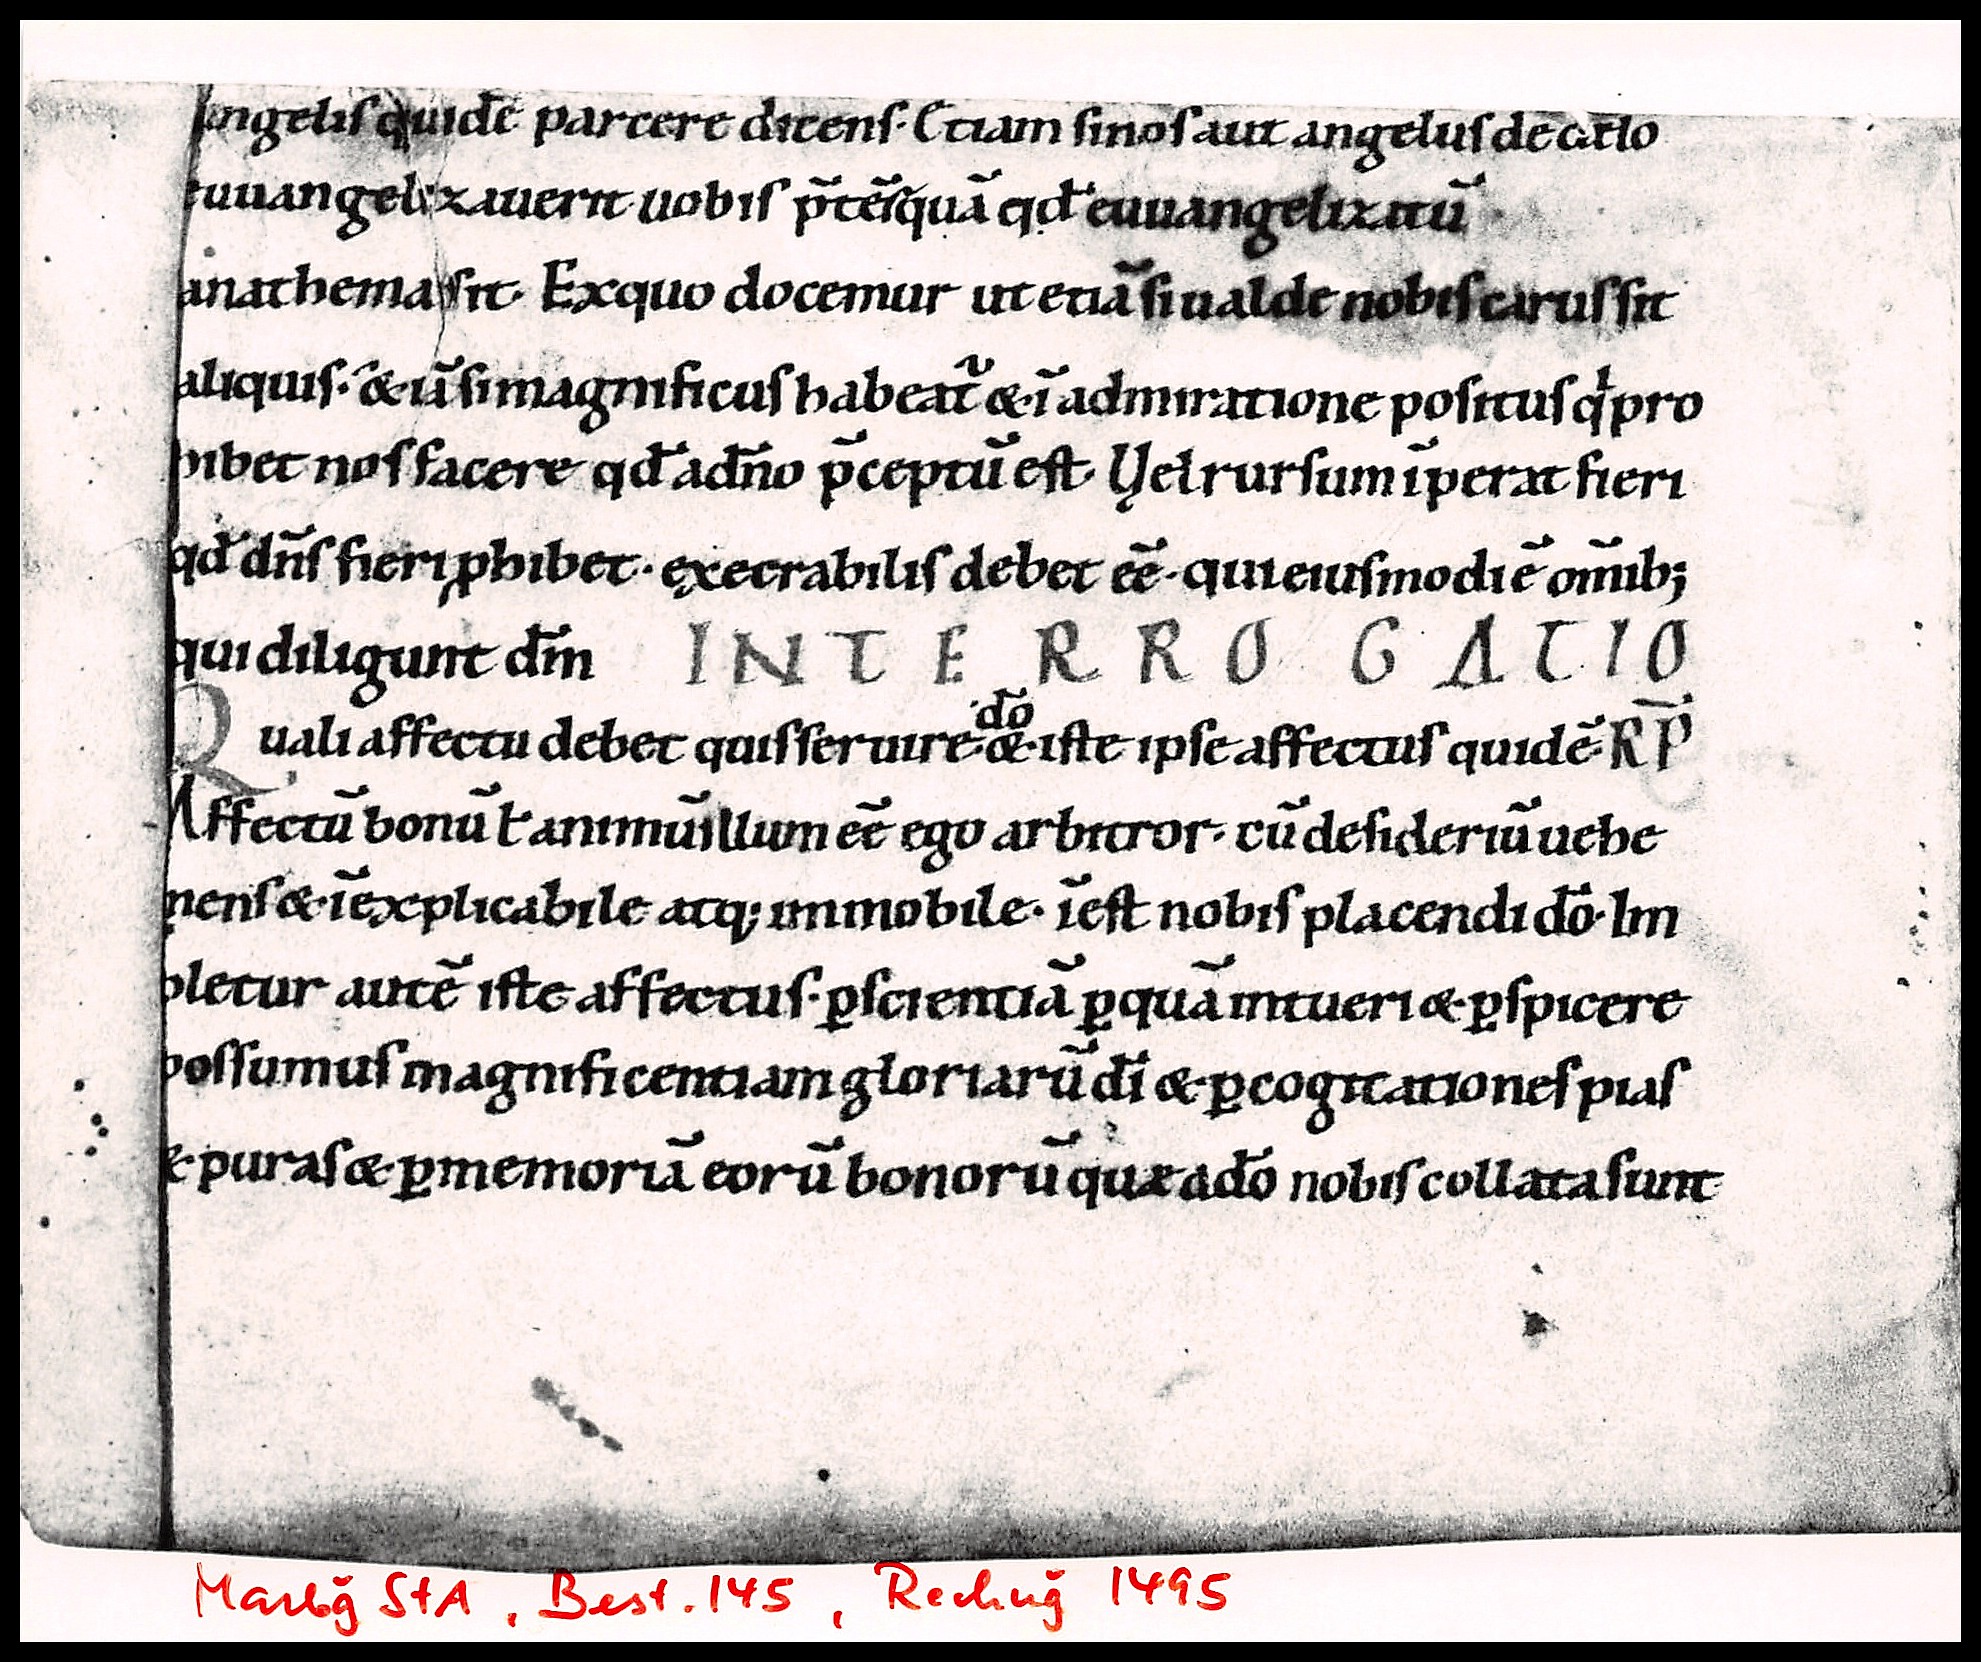 angelis quidē parcere dicens· Etiam si nos aut angelus de cælo
euuangelizauerit uobis p̄tḗrquā qđ euuangelizatū
anathema sit· Ex quo docemur ut etiā si ualde nobis carus sit
aliquis· & iā si magnificus habeat᷑ & ī admiratione positus qͥ pro
hibet nos facere qđ a dn̄o p̄ceptū est· Vel rursum īperat fieri
qđ dn̄s fieri ꝓhibet· execrabilis debet eē· qui eiusmodi ē om̄ib;
qui diligunt dm̄ INTERROGATIO
Quali affectu debet quis seruire dō & iste ipse affectus quidē· R̄P̄
Affectū bonū ł animū illum eē ego arbitror· cū desideriū uehe
mens & īexplicabile atq; immobile· īest nobis placendi dō· Im
pletur autē iste affectus· ꝑ scientiā ꝑ quā intueri & ꝑspicere
possumus magnificentiam gloriarū dī & ꝑ cogitationes pias
& puras & ꝑ memoriā eorū bonorū quæ a dō nobis collata sunt
Marbg̃ StA, Best. 145, Rechng̃ 1495